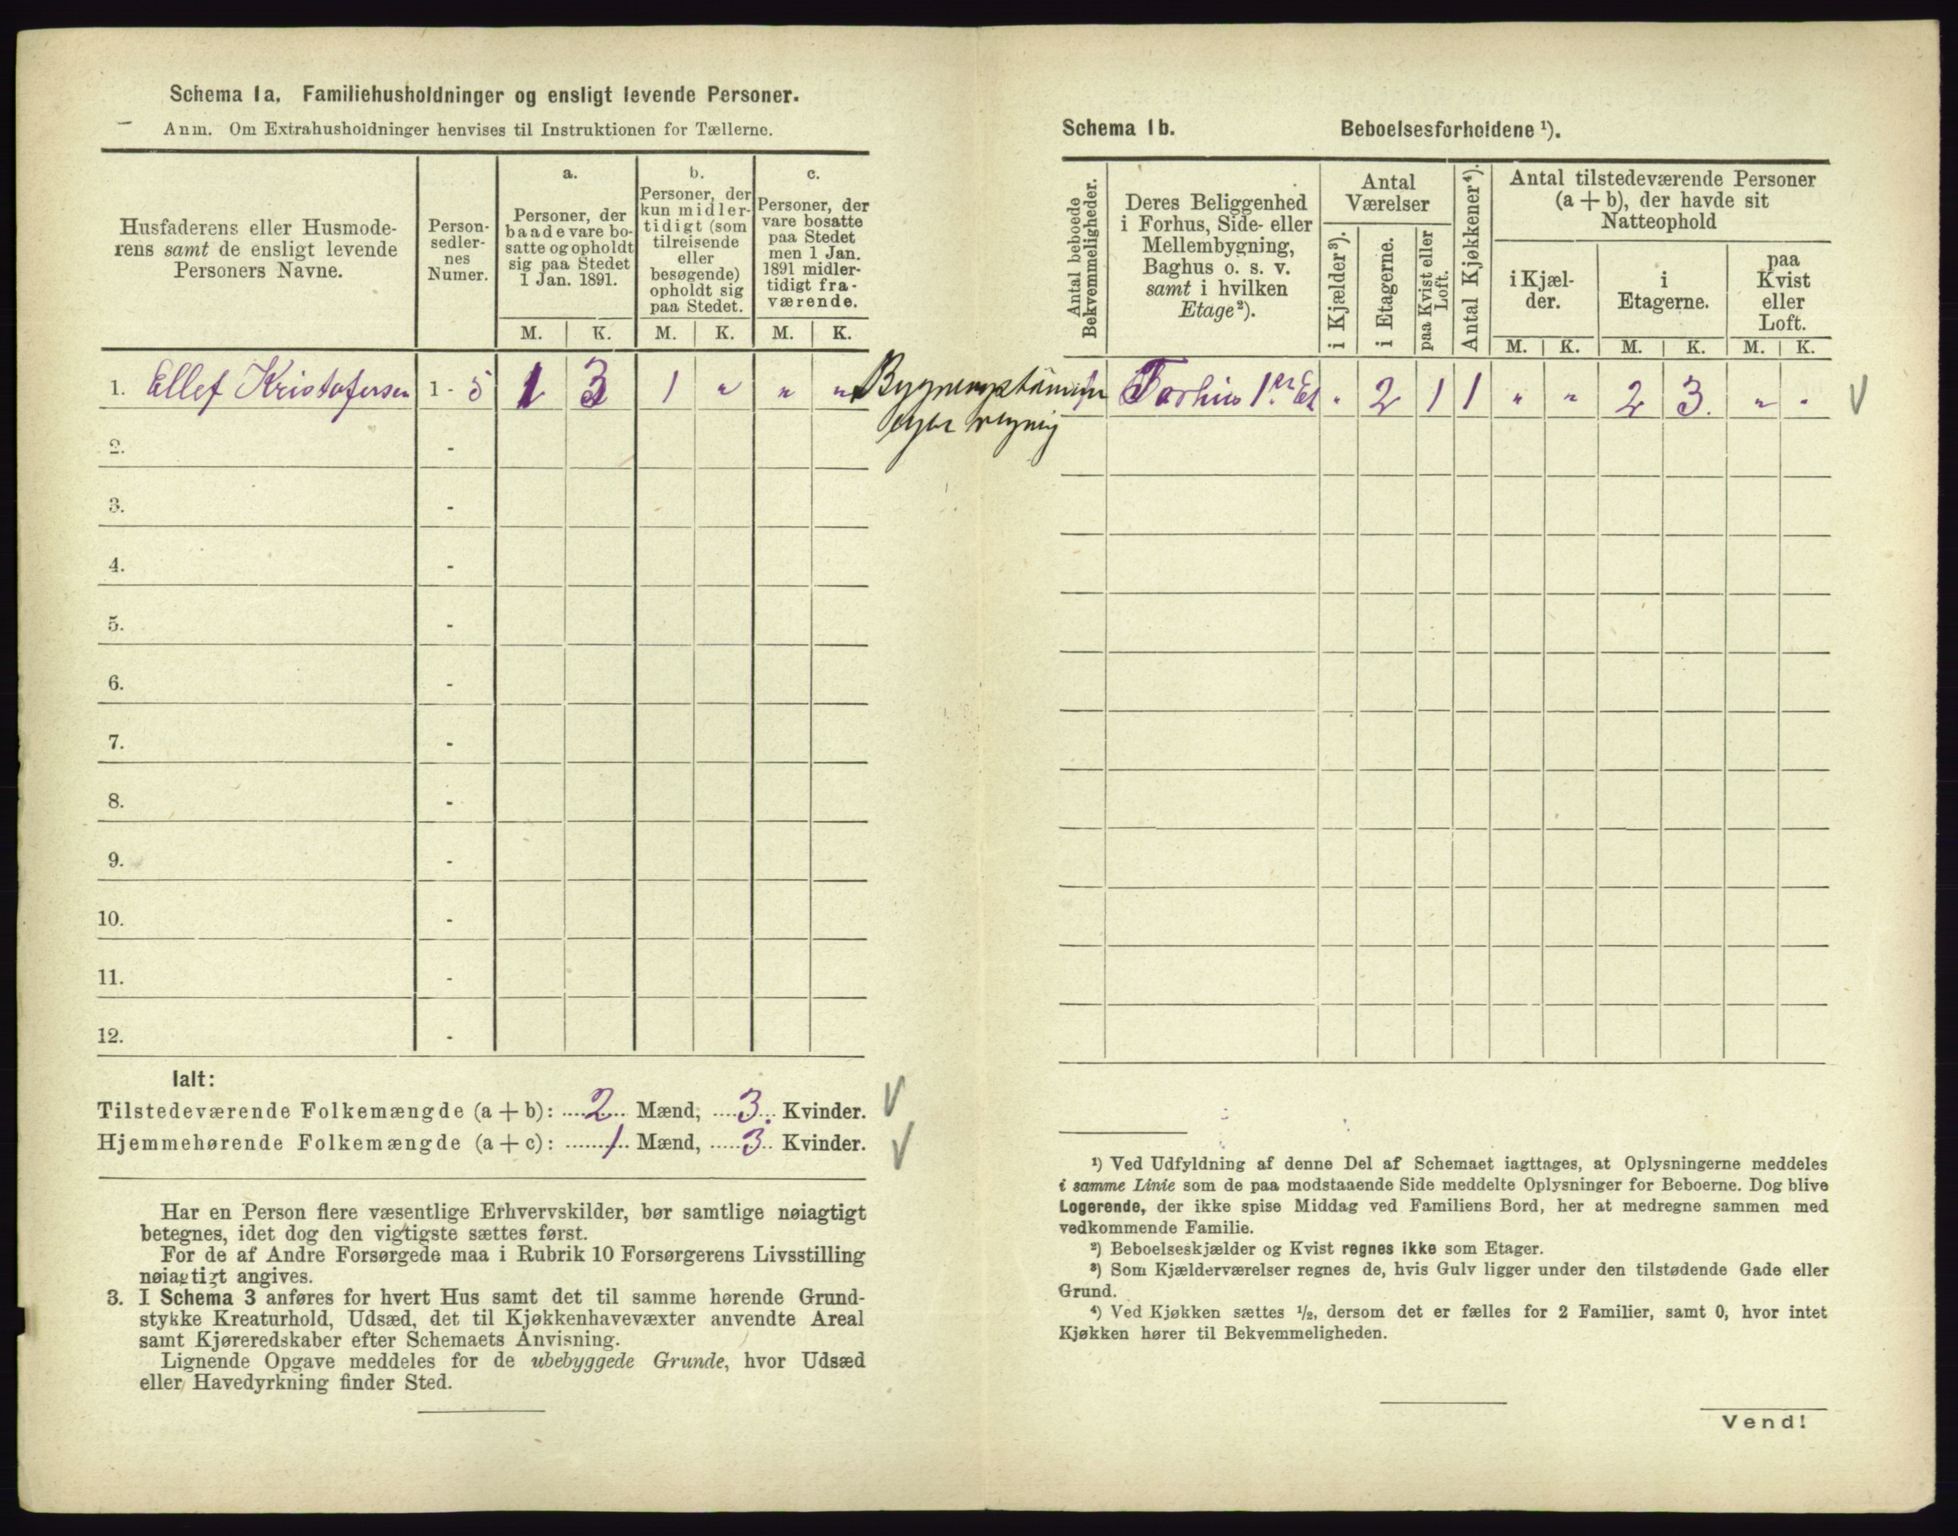 Schema 1a. Familiehusholdninger og ensligt levende Personer.
Anm. Om Extrahusholdninger henvises til Instruktionen for Tællerne.
Husfaderens eller Husmode-
rens samt de ensligt levende
Personers Navne.
Person-
sedler-
nes
Numer.
a.
Personer, der
baade vare bo-
satte og opholdt
sig paa Stedet
1 Jan. 1891.
b.
Personer, der
kun midler-
tidigt (som
tilreisende
eller
besøgende)
opholdt sig
paa Stedet.
c.
Personer, der
vare bosatte
paa Stedet
men 1 Jan.
1891 midler-
tidigt fra-
værende.
M. K. M. K. M. K.
1. Ellef Kristofersen 1 - 5 1 3 1 " " "
2. -
3. -
4. -
5. -
6. -
7. -
8. -
9. -
10. -
11. -
12. -
Ialt:
Tilstedeværende Folkemængde (a + b): 2 Mænd, 3 Kvinder.
Hjemmehørende Folkemængde (a + c): 1 Mænd, 3 Kvinder.
Har en Person flere væsentlige Erhvervskilder, bør samtlige nøiagtigt
betegnes, idet dog den vigtigste sættes først.
For de af Andre Forsørgede maa i Rubrik 10 Forsørgerens Livsstilling
nøiagtigt angives.
3. I Schema 3 anføres for hvert Hus samt det til samme hørende Grund-
stykke Kreaturhold, Udsæd, det til Kjøkkenhavevæxter anvendte Areal
samt Kjøreredskaber efter Schemaets Anvisning.
Lignende Opgave meddeles for de ubebyggede Grunde, hvor Udsæd
eller Havedyrkning finder Sted.
Schema 1b. Beboelsesforholdene ¹).
Antal beboede
Bekvemmeligheder.
Deres Beliggenhed
i Forhus, Side- eller
Mellembygning,
Baghus o. s. v.
samt i hvilken
Etage²).
Antal
Værelser
i Kjælder³).
i Etagerne.
paa Kvist eller
Loft.
Antal Kjøkkener⁴).
Antal tilstedeværende Personer
(a + b), der havde sit
Natteophold
i Kjæl-
der.
i
Etagerne.
paa
Kvist
eller
Loft.
M. K. M. K. M. K.
1 Forhus 1ste Et " 2 1 1 " " 2 3. " "
¹) Ved Udfyldning af denne Del af Schemaet iagttages, at Oplysningerne meddeles
i samme Linie som de paa modstaaende Side meddelte Oplysninger for Beboerne. Dog blive
Logerende, der ikke spise Middag ved Familiens Bord, her at medregne sammen med
vedkommende Familie.
²) Beboelseskjælder og Kvist regnes ikke som Etager.
³) Som Kjælderværelser regnes de, hvis Gulv ligger under den tilstødende Gade eller
Grund.
⁴) Ved Kjøkken sættes ½, dersom det er fælles for 2 Familier, samt 0, hvor intet
Kjøkken hører til Bekvemmeligheden.
Vend!